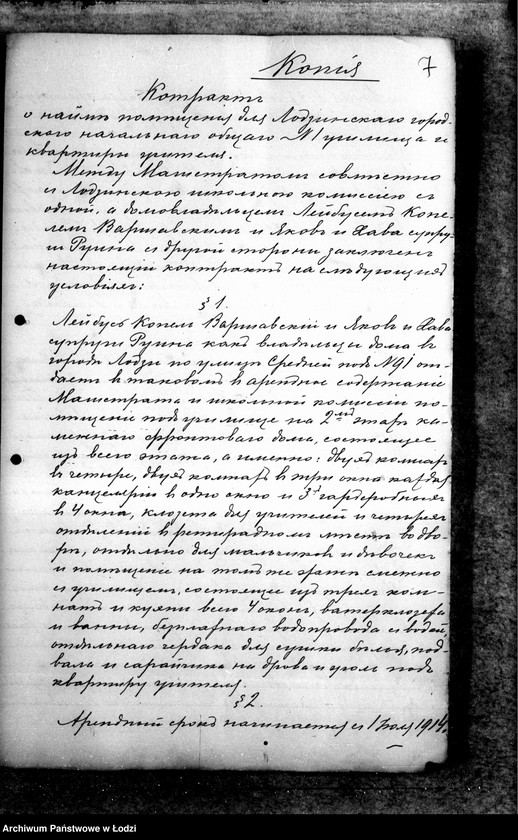 Копія
7
Контрактъ
о наймѣ помѣщенія для Лодзинскаго город-
ского начальнаго общаго N1 училища и
квартиры учителя.
Между Магистратомъ совмѣстно
съ Лодзинскою школьною комиссіею съ
одной, а домовладѣльцемъ Лейбусемъ Копе-
лемъ Варшавскимъ и Яковъ и Хава супру-
ги Руина съ другой стороны заключенъ
настоящій контрактъ на слѣдующихъ
условіяхъ:
§ 1.
Лейбусь Копель Варшавскій и Яковъ и Хава
супруги Руина какъ владѣльцы дома въ
городѣ Лодзи по улицѣ Средней подъ N91 от-
даетъ въ таковомъ въ арендное содержаніе
Магистрата и школьной комиссіи по-
мѣщеніе подъ училище на 2мъ этажѣ ка-
меннаго фронтоваго дома, состоящее
изъ всего этажа, а именно: двухъ комнатъ
въ четыре, двухъ комнатъ въ три окна каждая
канцеляріи въ одно окно и 3хъ гардеробныхъ
въ 4 окна, клозета для учителей и четырехъ
отдѣленій въ ретирадномъ мѣстѣ во дво-
рѣ, отдѣльно для мальчиковъ и дѣвочекъ
и помѣщеніе на томъ же этажѣ смежно
съ училищемъ, состоящее изъ трехъ ком-
натъ и кухни всего 4 оконъ, ватерклозета
и ванны, безплатнаго водопровода съ водой,
отдѣльнаго чердака для сушки бѣлья, под-
вала и сарайчика на дрова и уголь подъ
квартиру учителя.
§ 2.
Арендный срокъ начинается съ 1 Іюля 1914
Archiwum Państwowe w Łodzi